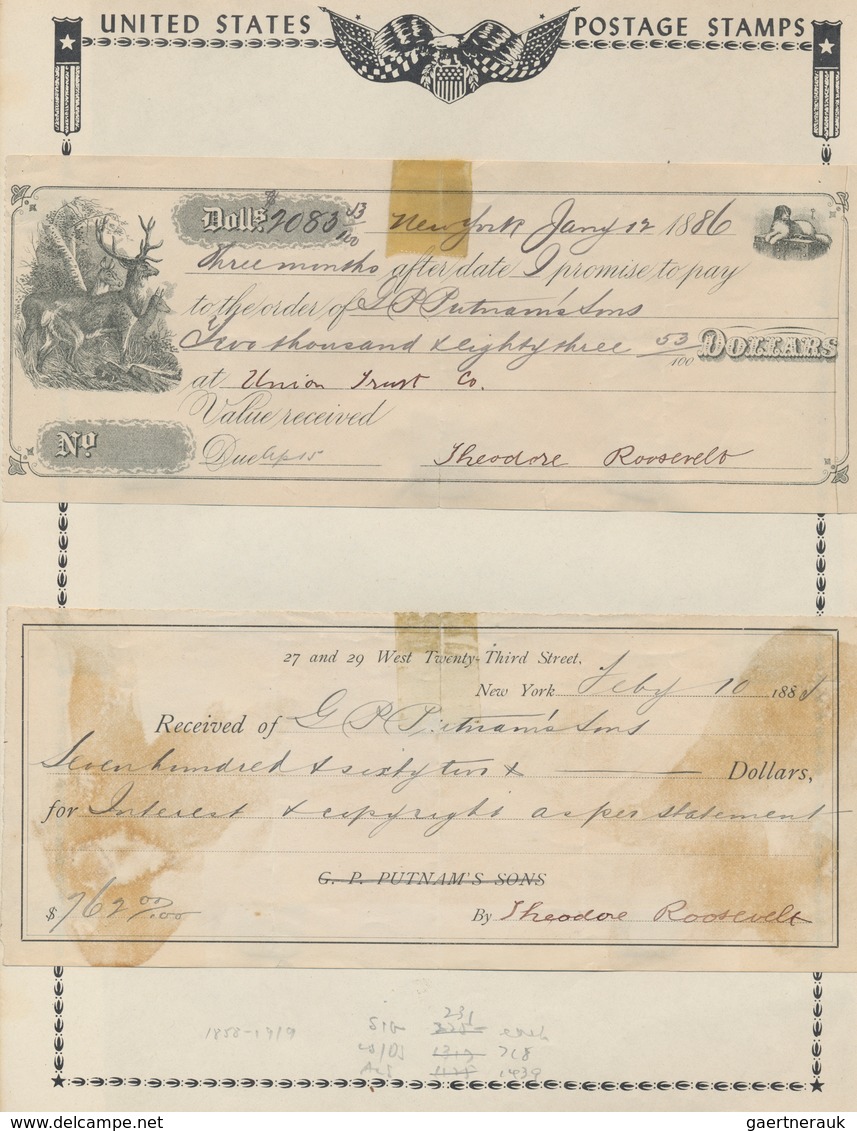 UNITED STATES POSTAGE STAMPS
Dolls. $2083 53/100 New York Jany 12 1886
Three months after date I promise to pay
to the order of G P Putnam's Sons
Two thousand & eighty three 53/100 DOLLARS
at Union Trust Co.
Value received
No.
Due Ap 15 Theodore Roosevelt
27 and 29 West Twenty-Third Street,
New York Feby 10 188
Received of G P Putnam's Sons
Seven hundred & sixty two & Dollars,
for Interest & copyright as per statement
G. P. PUTNAM'S SONS
$762 00/100 By Theodore Roosevelt
1858-1919 SIG 231 each
718
ALS 1439
Delcampe.net
gaertnerauk